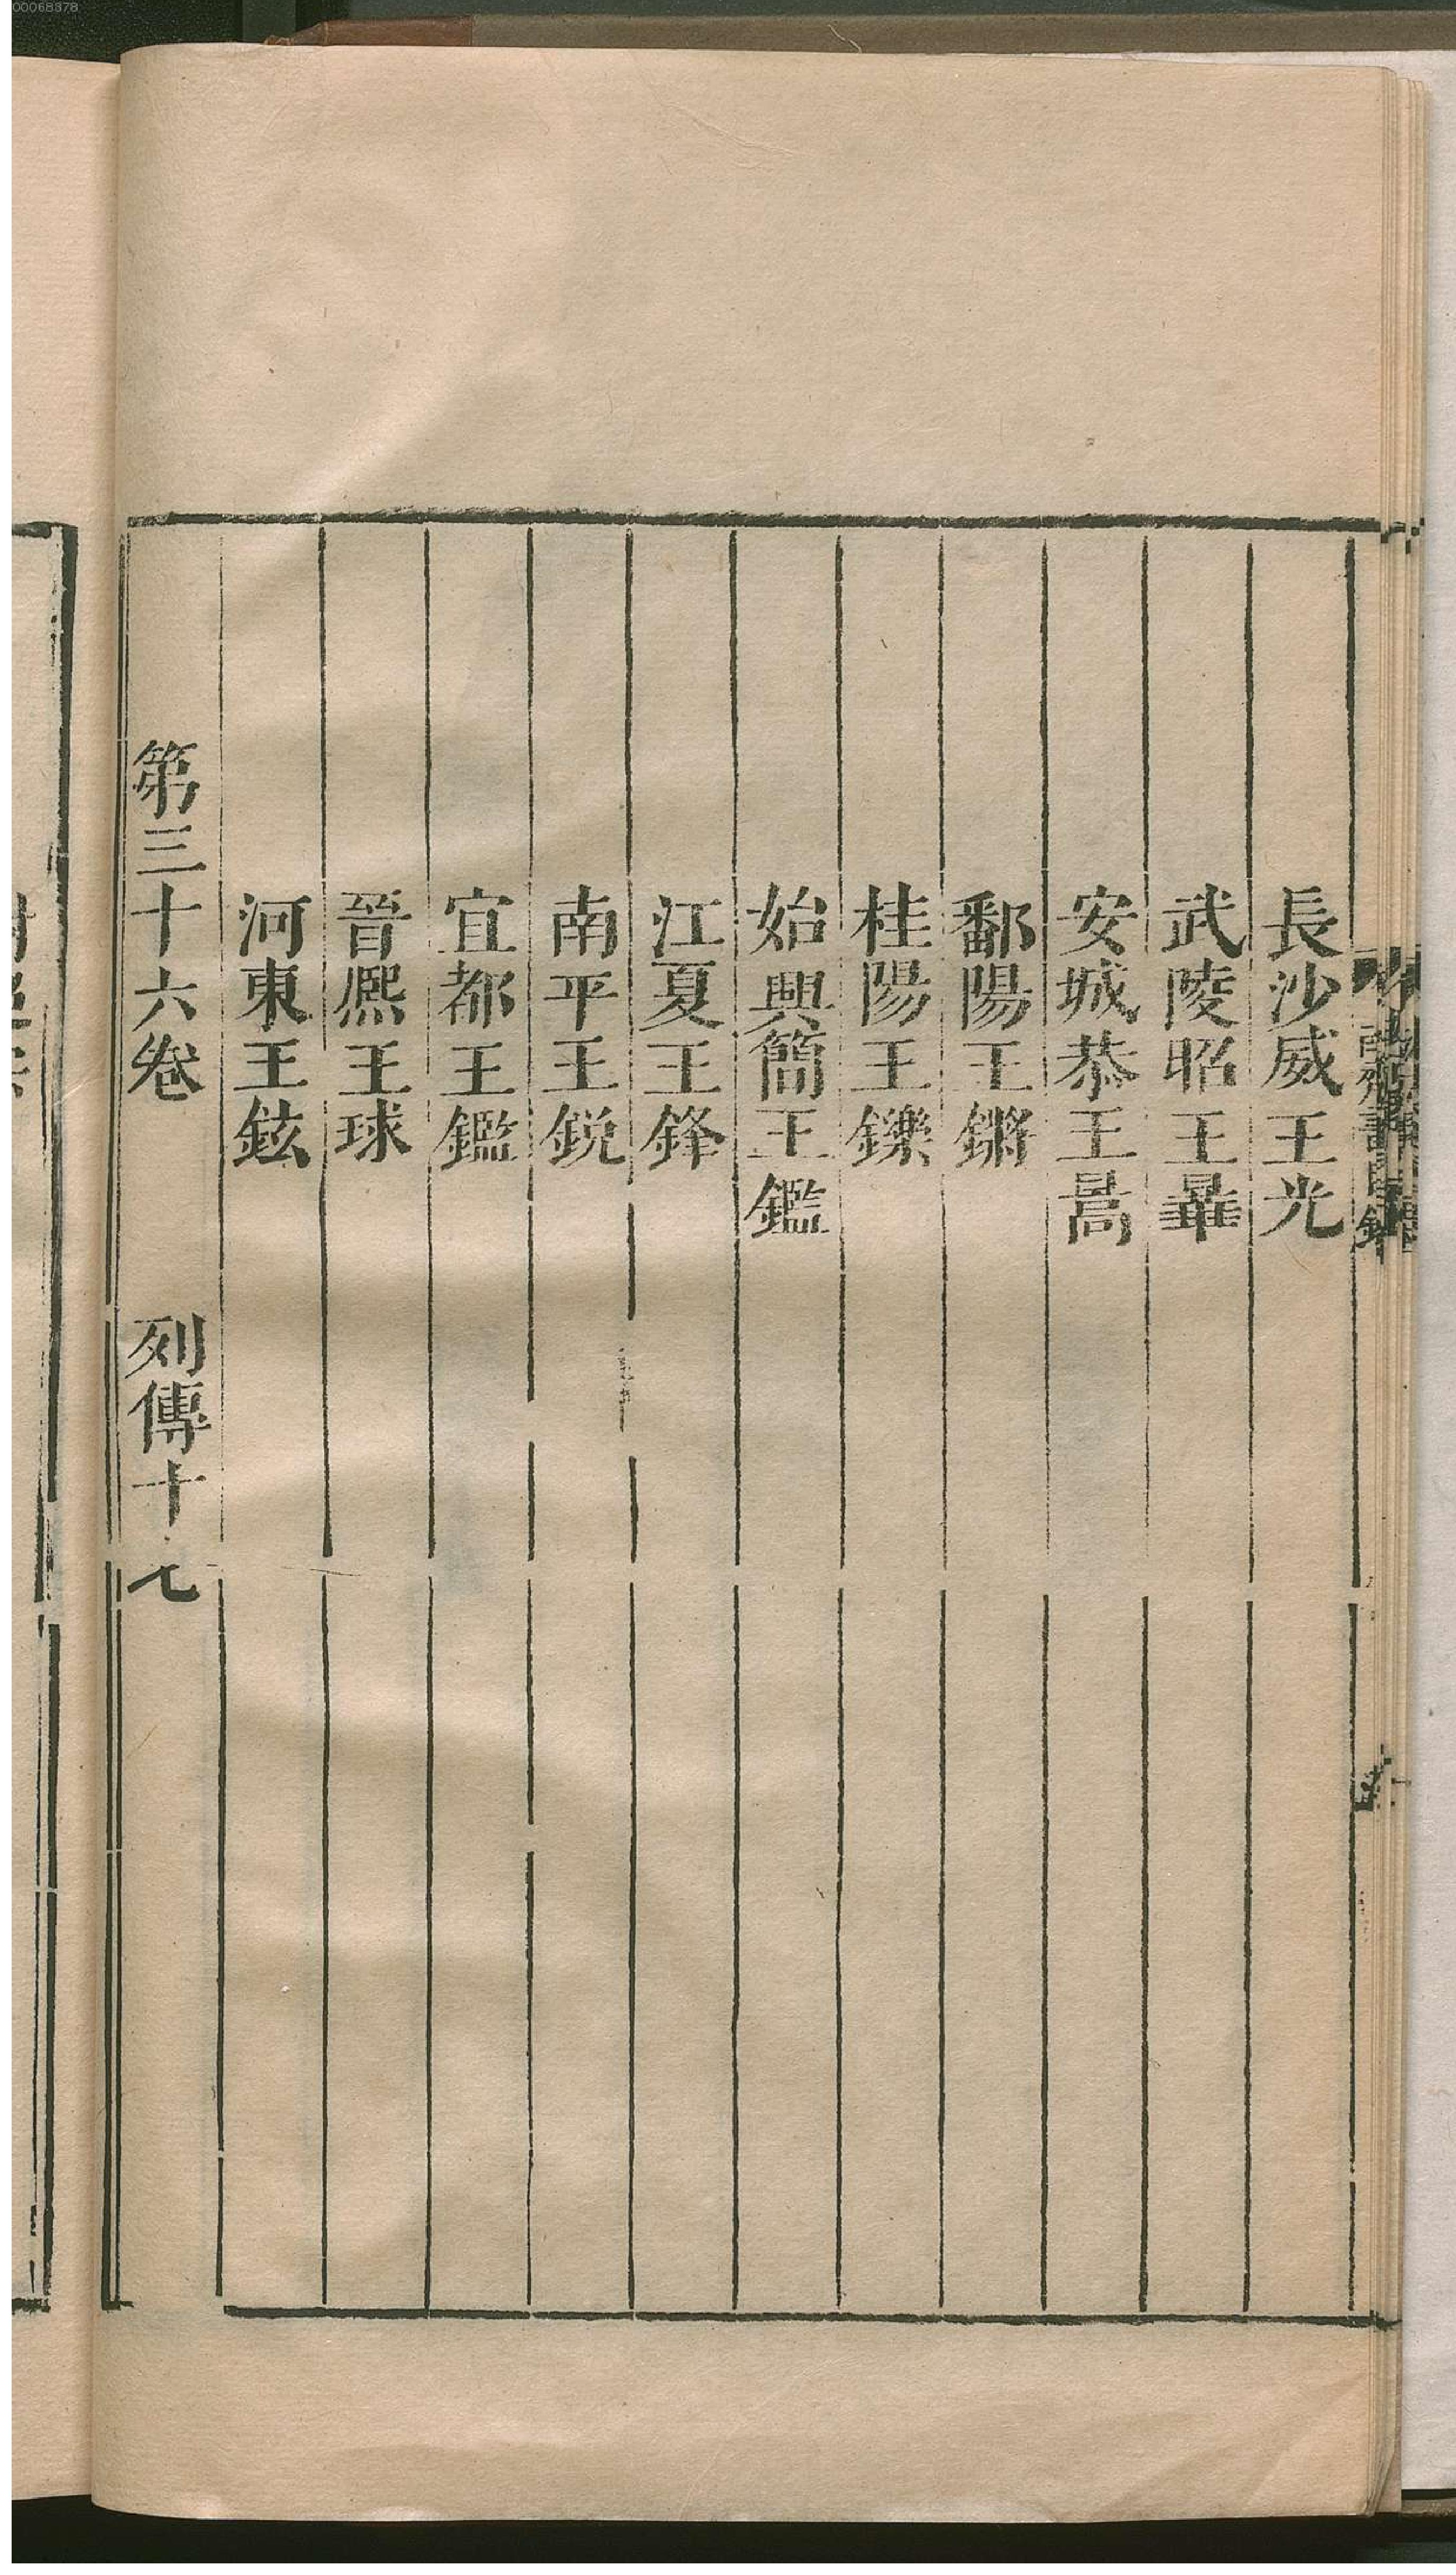 長沙威王光
武陵昭王曅
安城恭王暠
鄱陽王鏘
桂陽王鑠
始興簡王鑑
江夏王鋒
南平王銳
宜都王鑑
晉熈王球
河東王鉉
第三十六卷 列傳十七
00068378